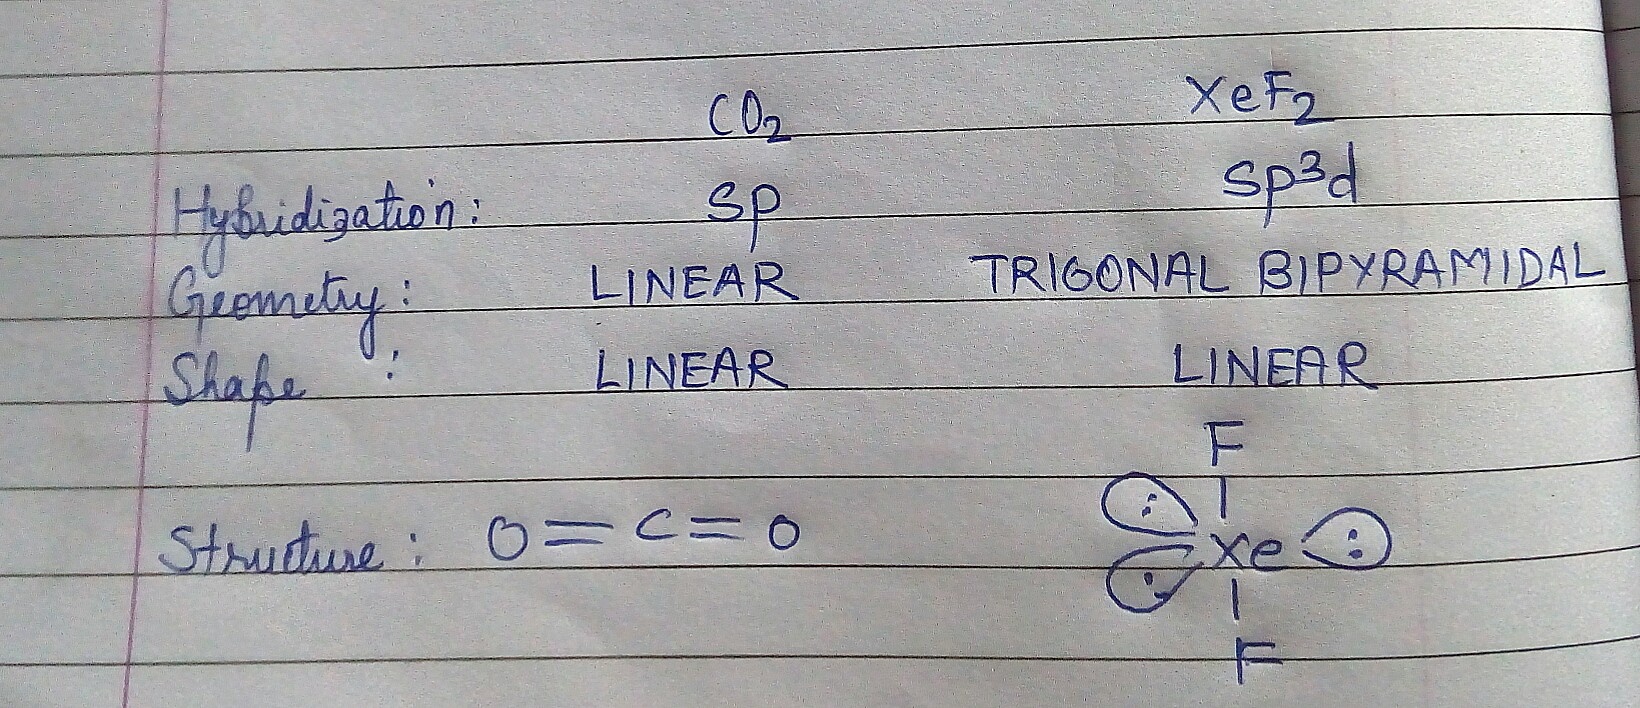 CO₂ XeF₂
Hybridization: sp sp³d
Geometry: LINEAR TRIGONAL BIPYRAMIDAL
Shape : LINEAR LINEAR
F
Structure: O=C=O Xe
F